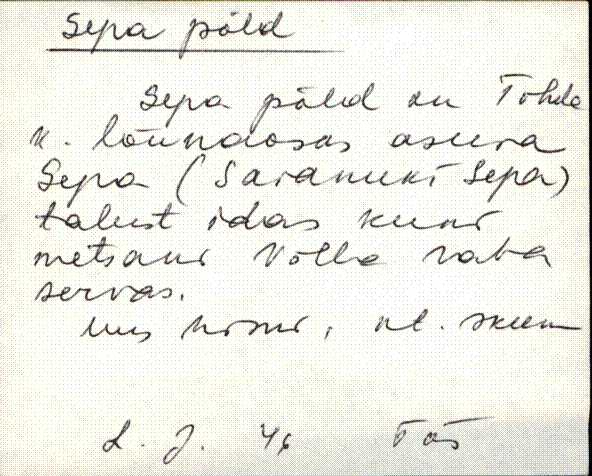 Sepa põld
Sepa põld on Tohela
k. lõunaosas asuva
Sepa (Saranuki Sepa)
talust idas kuni
metsani Võlla raba
servas.
Uus nimi,
L. J. 46 Tõs